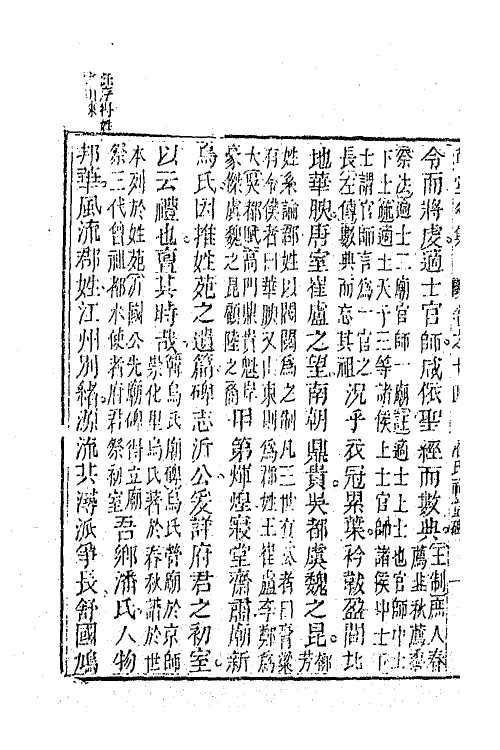 令而將虔適士官師咸依聖經而數典王制庶人春
薦韭秋薦黍
祭法適士二廟官師一廟註適士上士也官師中士
下士疏適士天子三等諸侯上士官師諸侯中士下
士謂官師言爲一官之
長左傳數典而忘其祖況乎衣冠累葉衿韍盈閭北
地華腴唐室崔盧之望南朝鼎貴吳都虞魏之昆柳芳
姓系論郡姓以閥閱爲之制凡三世有三公者曰膏粱
有令僕者曰華腴又山東則爲郡姓王崔盧李鄭爲
大吳都賦高門鼎貴魁岸
豪傑虞魏之昆顧陸之裔甲第輝煌寢堂齋肅廟新
烏氏因推姓苑之遺篇碑志沂公爰詳府君之初室
以云禮也亶其時哉韓烏氏廟碑烏氏營廟於京師
崇化里烏氏著於春秋譜於世
本列於姓苑沂國公先廟碑得立廟
祭三代曾祖都水使者府君祭初室吾鄉潘氏人物
邦華風流郡姓江州別緒源流共溥派爭長舒國鳩